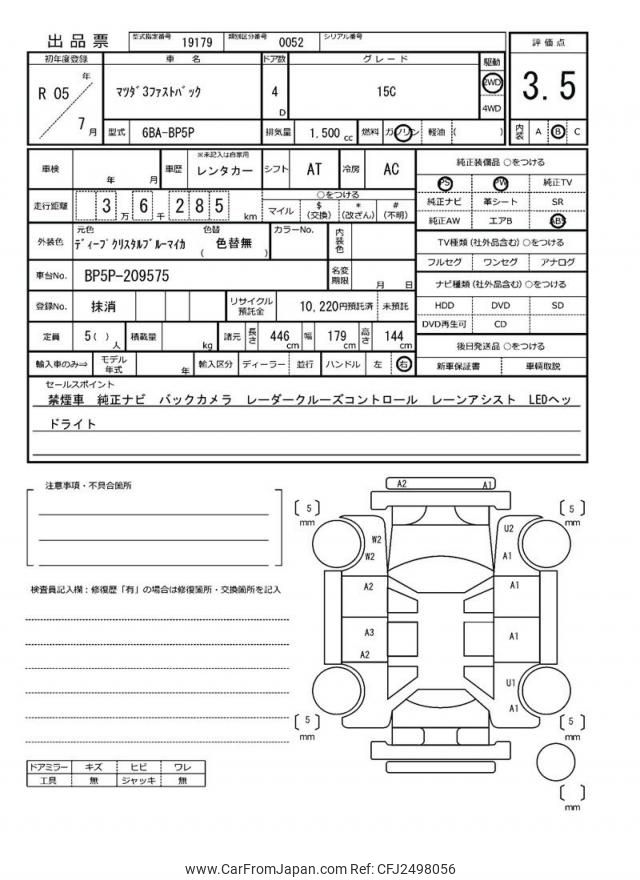 出品票 型式指定番号 19179 類別区分番号 0052 シリアル番号
初年度登録 車 名 ドア数 グレード 駆動 評価点
R 05 年 7 月 マツダ3ファストバック 4 D 15C 2WD 4WD 3.5
型式 6BA-BP5P 排気量 1,500 cc 燃料 ガソリン 軽油 ( ) 内装 A B C
車検 年 月 車歴 ※未記入は自家用 レンタカー シフト AT 冷房 AC 純正装備品 ○をつける
PS PW 純正TV
走行距離 3 万 6 千 2 8 5 km ○をつける
マイル $ (交換) * (改ざん) # (不明)
純正ナビ 革シート SR
純正AW エアB ABS
外装色 元色 ディープクリスタルブルーマイカ 色替 ( 色替無 ) カラーNo. 内装色
TV種類 (社外品含む) ○をつける
フルセグ ワンセグ アナログ
車台No. BP5P-209575 名変期限 月 日
ナビ種類 (社外品含む) ○をつける
登録No. 抹消 リサイクル預託金 10,220円預託済 未預託
HDD DVD SD
DVD再生可 CD
定員 5( ) 人 積載量 kg 諸元 長さ 446 cm 幅 179 cm 高さ 144 cm
後日発送品 ○をつける
輸入車のみ⇨ モデル年式 年 輸入区分 ディーラー 並行 ハンドル 左 右
新車保証書 車輌取説
セールスポイント
禁煙車 純正ナビ バックカメラ レーダークルーズコントロール レーンアシスト LEDヘッ
ドライト
注意事項・不具合箇所
検査員記入欄：修復歴「有」の場合は修復箇所・交換箇所を記入
A2 A1
5 mm 5 mm
W2 U2
W2 A1
A2 A1
A3 A1
A2
U1
A1
5 mm 5 mm
mm
ドアミラー キズ ヒビ ワレ
工具 無 ジャッキ 無
www.CarFromJapan.com Ref: CFJ2498056